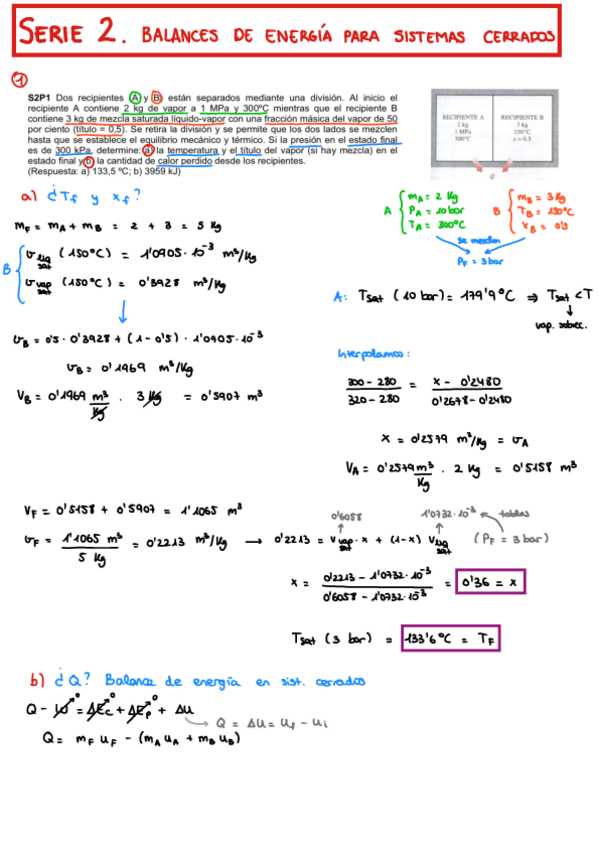 SERIE 2. BALANCES DE ENERGÍA PARA SISTEMAS CERRADOS
1
S2P1 Dos recipientes A y B están separados mediante una división. Al inicio el
recipiente A contiene 2 kg de vapor a 1 MPa y 300ºC mientras que el recipiente B
contiene 3 kg de mezcla saturada líquido-vapor con una fracción másica del vapor de 50
por ciento (título = 0,5). Se retira la división y se permite que los dos lados se mezclen
hasta que se establece el equilibrio mecánico y térmico. Si la presión en el estado final
es de 300 kPa, determine: a) la temperatura y el título del vapor (si hay mezcla) en el
estado final y b) la cantidad de calor perdido desde los recipientes.
(Respuesta: a) 133,5 ºC; b) 3959 kJ)
RECIPIENTE A
2 kg
1 MPa
300°C
RECIPIENTE B
3 kg
150°C
x = 0.5
Q
a) ¿Tf y xf?
mF = mA + mB = 2 + 3 = 5 Kg
A { mA = 2 Kg
PA = 10 bar
TA = 300ºC
B { mB = 3 Kg
TB = 150ºC
xB = 0'5
se mezclan
PF = 3 bar
B { υliq sat (150ºC) = 1'0905·10⁻³ m³/Kg
υvap sat (150ºC) = 0'3928 m³/Kg
υB = 0'5 · 0'3928 + (1 - 0'5) · 1'0905·10⁻³
υB = 0'1969 m³/Kg
VB = 0'1969 m³/Kg · 3 Kg = 0'5907 m³
A: Tsat (10 bar) = 179'9ºC ⇒ Tsat < T
vap. sobrec.
Interpolamos:
300 - 280 / 320 - 280 = x - 0'2480 / 0'2678 - 0'2480
x = 0'2579 m³/Kg = υA
VA = 0'2579 m³/Kg · 2 Kg = 0'5158 m³
VF = 0'5158 + 0'5907 = 1'1065 m³
0'6058 1'0732·10⁻³ tablas
υF = 1'1065 m³ / 5 Kg = 0'2213 m³/Kg → 0'2213 = υvap sat · x + (1-x) υliq sat (PF = 3 bar)
x = 0'2213 - 1'0732·10⁻³ / 0'6058 - 1'0732·10⁻³ = 0'36 = x
Tsat (3 bar) = 133'6ºC = TF
b) ¿Q? Balance de energía en sist. cerrados
Q - W⁰ = ΔEc⁰ + ΔEp⁰ + ΔU
Q = ΔU = Uf - Ui
Q = mF uF - (mA uA + mB uB)